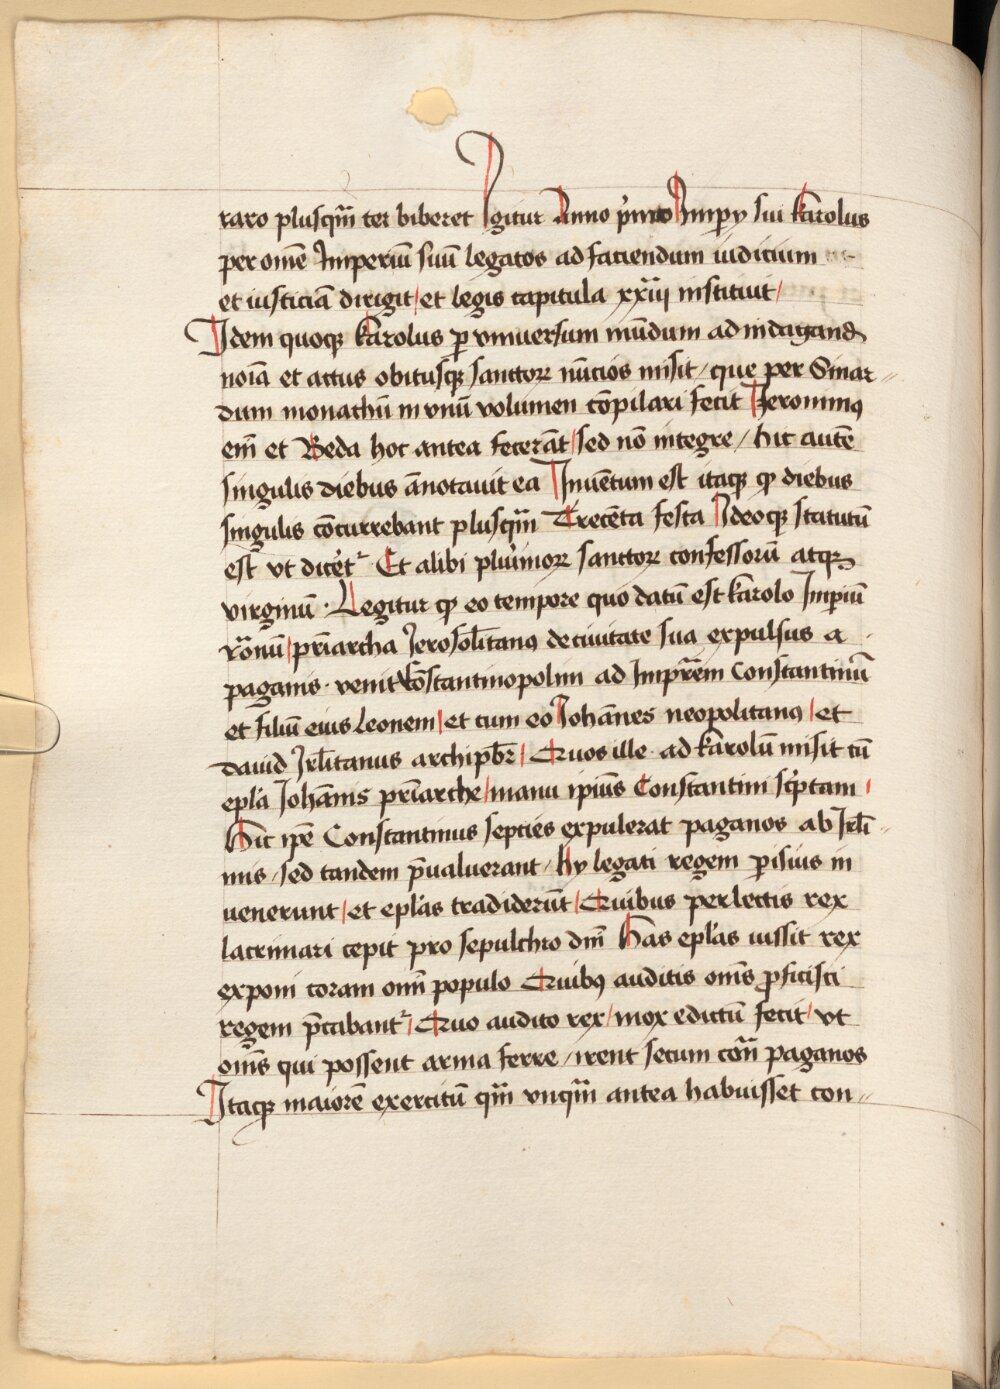 raro plusqm̃ ter biberet Igitur Anno p̃mo Impy sui karolus
per om̄e Imperiū suū legatos ad faciendum iudicium
et iusticiā dirigit / et legis capitula xxiij instituit /
Idem quoqꝫ karolus ꝑ vniuersum mūdum ad indagand
noīa et actus obitusqꝫ sanctoꝝ nūcios misit / que per Sinar⸗
dum monachū in vnū volumen cōpilari fecit Jeronimꝰ
em̄ et Beda hoc antea fecerāt / sed nō integre / hic autē
singulis diebus ānotauit ea Inuētum est itaqꝫ ꝙ diebus
singulis cōcurrebant plusqm̃ Trecēta festa Ideoqꝫ statutū
est vt dicet̉ᷣ Et alibi plurimoꝝ sanctoꝝ confessorū atqꝫ
virginū · Legitur ꝙ eo tempore quo datū est karolo Imꝑiū
rōnū / pr̄iarcha Jerosolitanꝰ de ciuitate sua expulsus a
paganis · venit Cōstantinopolim ad Impr̄em Constantinū
et filiū eius Leonem / et cum eo Johānes neopolitanꝰ / et
dauid Jrl̄itanus archipbr̄ / Quos ille ad karolū misit cū
epl̄a Johānis pr̄iarche / manu ipiūs Constantini sc̉ptam /
Hic ip̄e Constantinus septies expulerat paganos ab Jrl̄i⸗
mis / sed tandem p̄ualuerant / hy legati regem ꝑisius in
uenerunt / et epl̄as tradiderūt / Quibus perlectis rex
lacrimari cepit pro sepulchro dm̄ Has epl̄as iussit rex
exponi coram om̄i populo Quibꝰ auditis om̄s ꝓficisci
regem p̄cabantᷣ / Quo audito rex / mox edictū fecit / vt
om̄s qui possent arma ferre / irent secum cōn paganos
Itaqꝫ maiorē exercitū qm̃ vnqm̃ antea habuisset con⸗